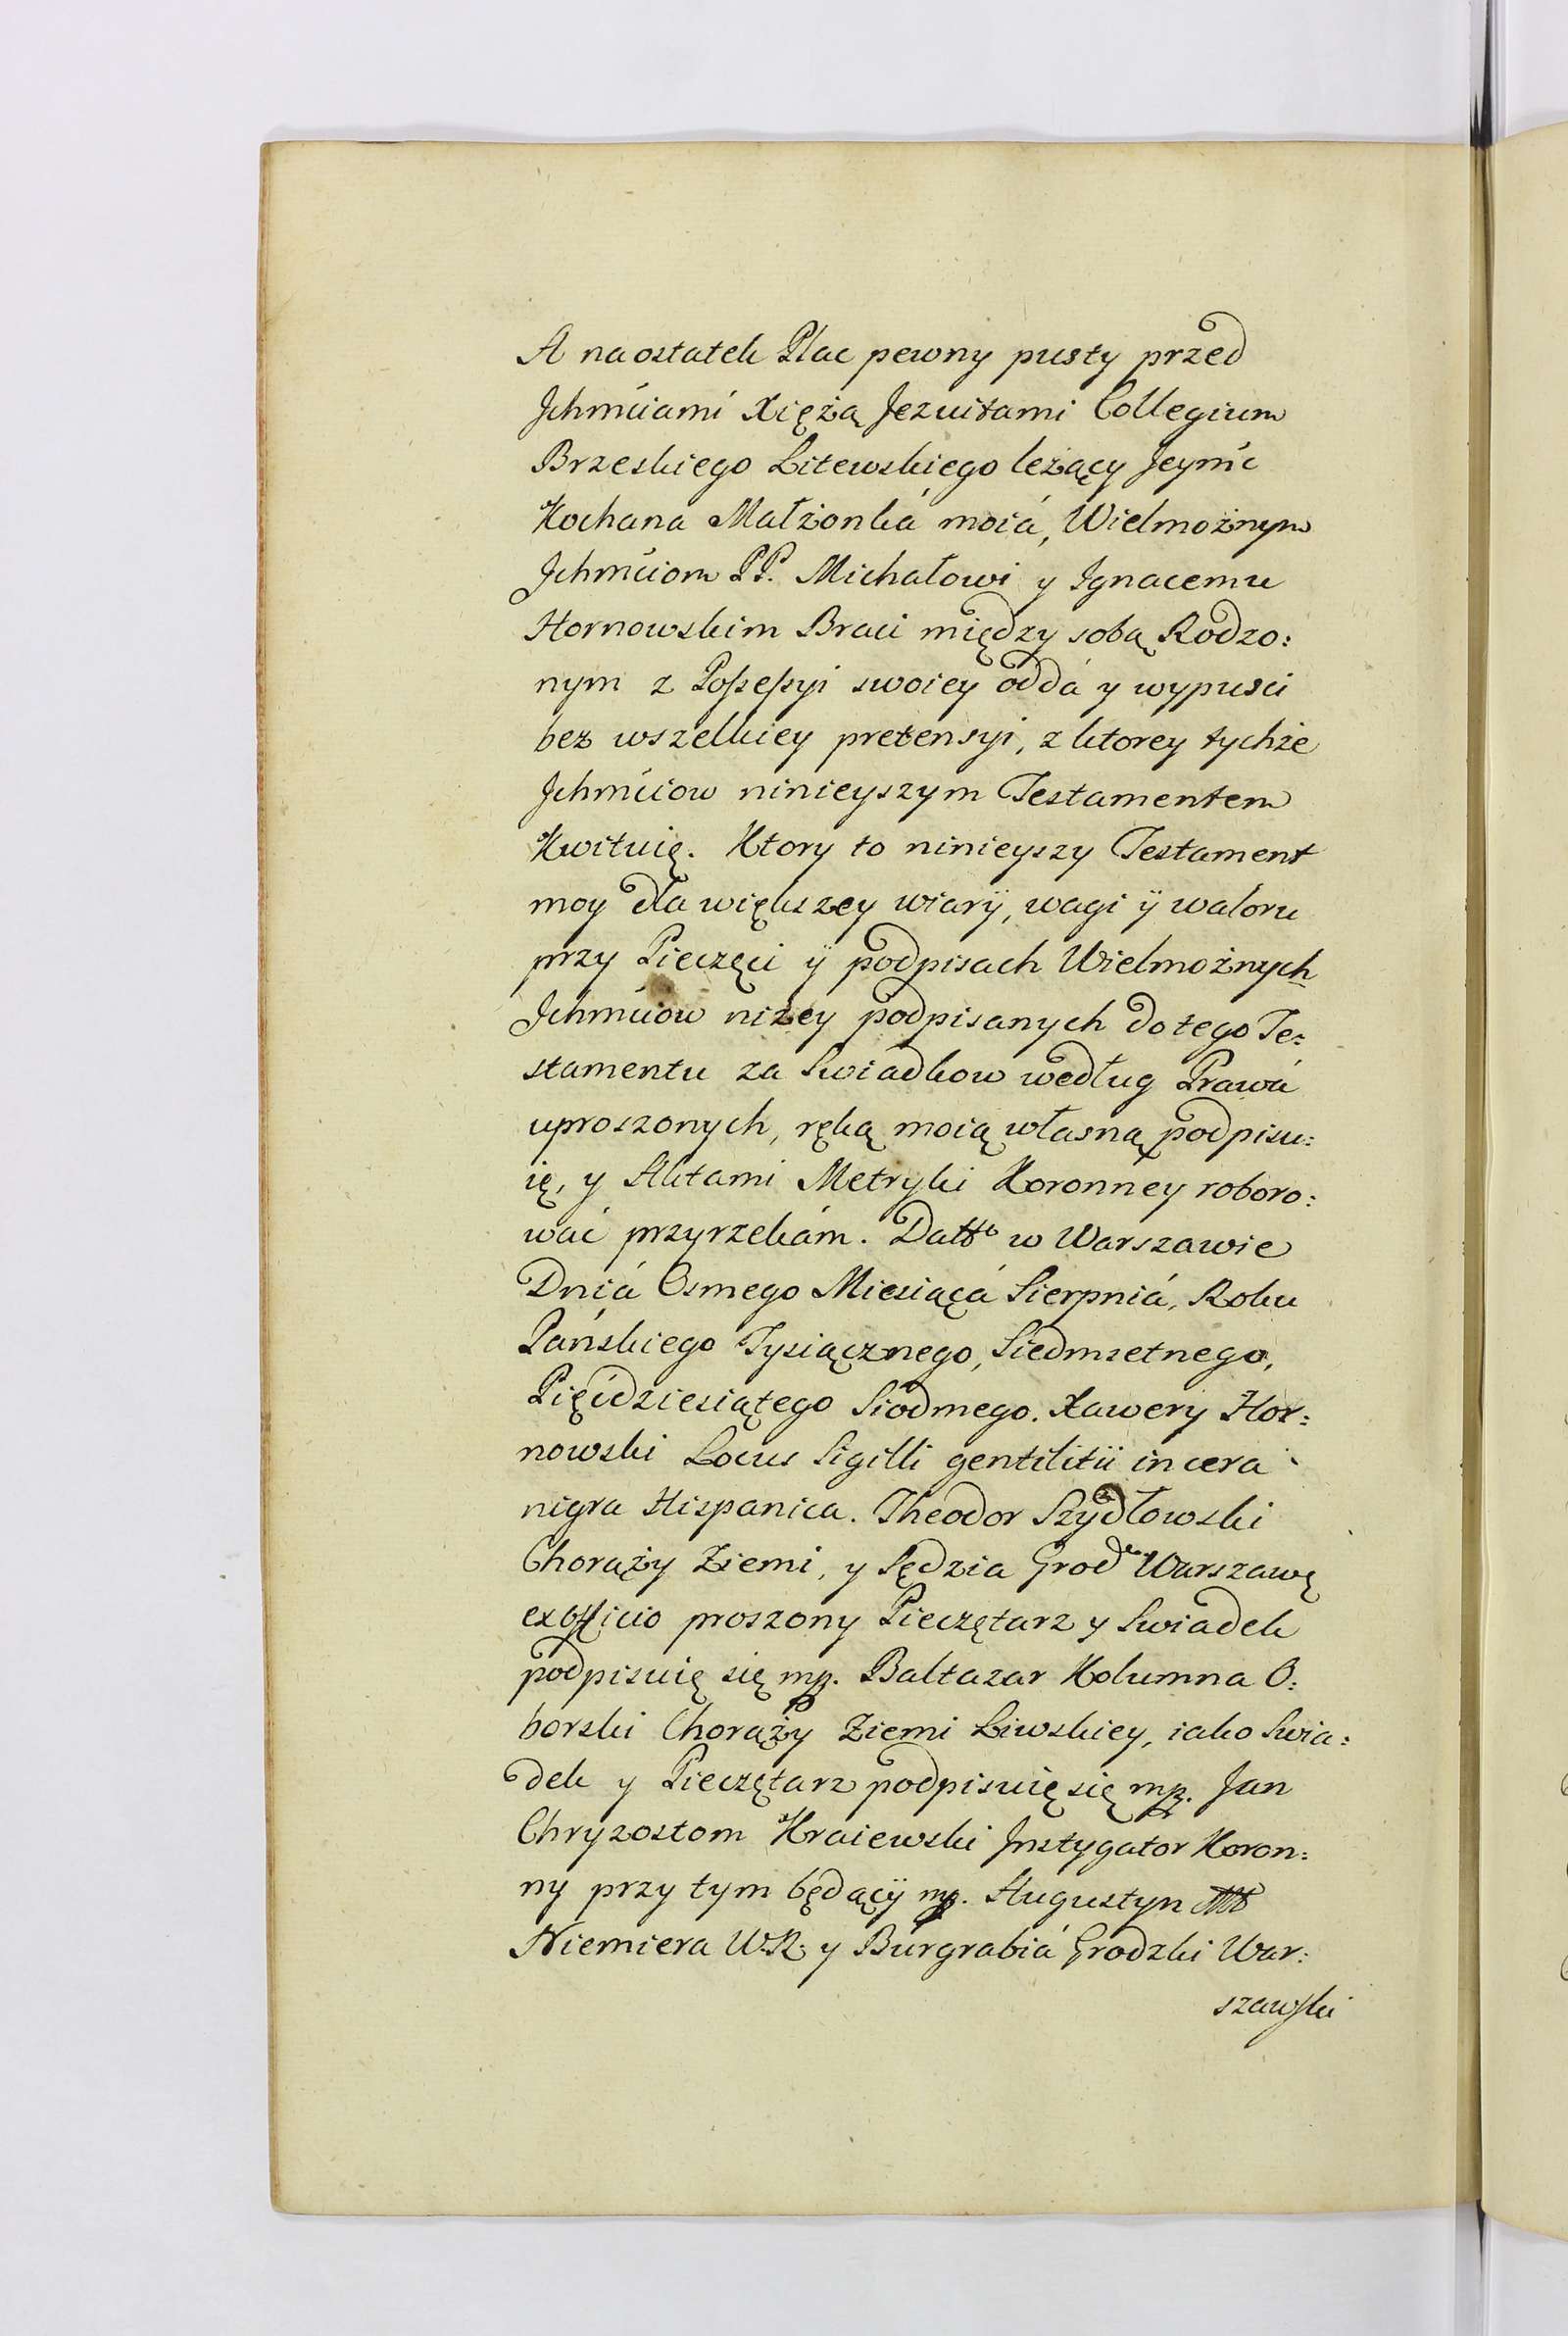 A naostatek Plac pewny pusty przed
Jchmćiami Xiężą Jezuitami Collegium
Brzeskiego Litewskiego leżący Jeymć
Kochana Małżonká moiá, Wielmożnym
Jchmćiom PP. Michałowi y Ignacemu
Hornowskim Braci między sobą Rodzo:
nym z Possessyi swoiey oddá y wypusci
bez wszelkiey pretensyi, z ktorey tychże
Jchmćiow ninieyszym Testamentem
Kwituię. Ktory to ninieyszy Testament
moy dla większey wiarÿ, wagi ÿ waloru
przy Pieczęci ÿ podpisach Wielmożnych
Jchmćiow niżey podpisanych do tego Te:
stamentu za Swiadkow według Prawá
uproszonych, ręką moią własną podpisu:
ię, y Aktami Metryki Koronney roboro:
wać przyrzekám. Datt w Warszawie
Dniá Osmego Miesiącá Sierpniá, Roku
Pańskiego Tysiącznego, Siedmsetnego,
Pięćdziesiątego Siodmego. Xawery Hor:
nowski Locus Sigilli gentilitii in cera
nigra Hispanica. Theodor Szydłowski
Chorąży Ziemi, y Sędzia Grod Warszawę
ex Officio proszony Pieczętarz y Swiadek
podpisuię się mp. Baltazar Kolumna O:
borski Chorąży Ziemi Liwskiey, iako Swia:
dek y Pieczętarz podpisuię się mp. Jan
Chryzostom Kraiewski Jnstygator Koron:
ny przy tym będącÿ mp. Augustyn
Niemiera W.R. y Burgrabiá Grodzki War:
szawski